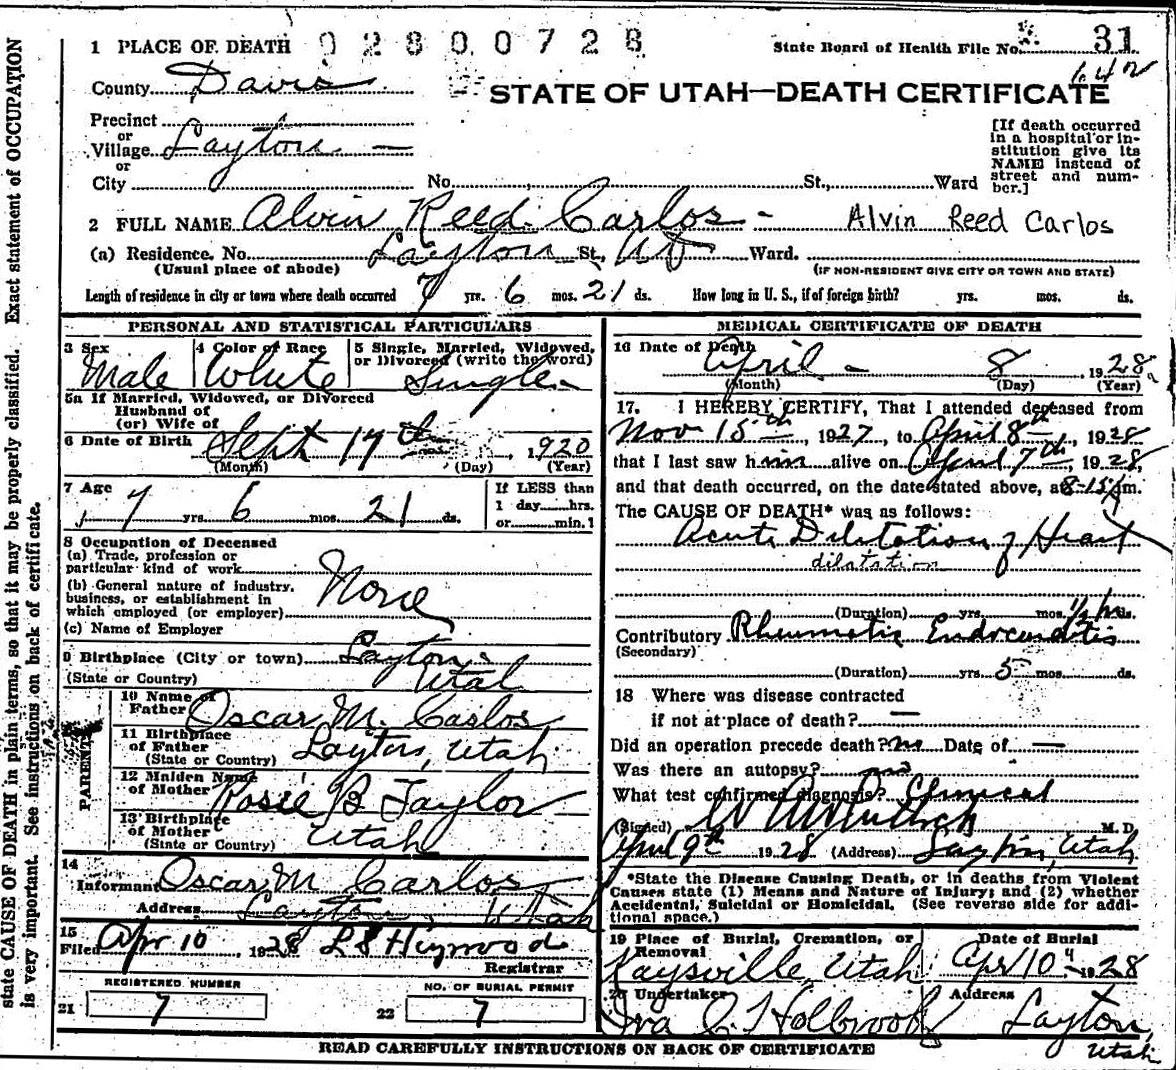 1 PLACE OF DEATH 02800728 State Board of Health File No. 31
642
County Davis
STATE OF UTAH—DEATH CERTIFICATE
Precinct
or
Village Layton —
or
City No. St., Ward
[If death occurred in a hospital or institution give its NAME instead of street and number.]
2 FULL NAME Alvin Reed Carlos - Alvin Reed Carlos
(a) Residence. No. Layton St., Ut Ward.
(Usual place of abode) (IF NON-RESIDENT GIVE CITY OR TOWN AND STATE)
Length of residence in city or town where death occurred 7 yrs. 6 mos. 21 ds. How long in U. S., if of foreign birth? yrs. mos. ds.
PERSONAL AND STATISTICAL PARTICULARS
3 Sex 4 Color of Race 5 Single, Married, Widowed, or Divorced (write the word)
Male White Single
5a If Married, Widowed, or Divorced
Husband of
(or) Wife of
6 Date of Birth Sept 17th, 1920
(Month) (Day) (Year)
7 Age If LESS than
7 yrs. 6 mos. 21 ds. 1 day hrs.
or min.?
8 Occupation of Deceased
(a) Trade, profession or
particular kind of work None
(b) General nature of industry,
business, or establishment in
which employed (or employer)
(c) Name of Employer
9 Birthplace (City or town) Layton
(State or Country) Utah
PARENTS
10 Name of
Father Oscar M. Carlos
11 Birthplace
of Father Layton, Utah
(State or Country)
12 Maiden Name
of Mother Rosie B Taylor
13 Birthplace
of Mother Utah
(State or Country)
14
Informant Oscar M Carlos
Address Layton, Utah
15
Filed Apr 10, 1928 L S Heywood
Registrar
REGISTERED NUMBER NO. OF BURIAL PERMIT
21 7 22 7
MEDICAL CERTIFICATE OF DEATH
16 Date of Death
April - 8, 1928
(Month) (Day) (Year)
17. I HEREBY CERTIFY, That I attended deceased from
Nov 15th, 1927, to April 8th, 1928
that I last saw him alive on April 7th, 1928,
and that death occurred, on the date stated above, at 8-15 m.
The CAUSE OF DEATH* was as follows:
Acute Dilitation of Heart
dilatation
(Duration) yrs. mos. 1/2 hr ds.
Contributory Rheumatic Endocarditis
(Secondary)
(Duration) yrs. 5 mos. ds.
18 Where was disease contracted
if not at place of death? —
Did an operation precede death? no Date of —
Was there an autopsy? no
What test confirmed diagnosis? Clinical
(Signed) M. D.
April 9th 1928 (Address) Layton, Utah
*State the Disease Causing Death, or in deaths from Violent
Causes state (1) Means and Nature of Injury; and (2) whether
Accidental, Suicidal or Homicidal. (See reverse side for additional space.)
19 Place of Burial, Cremation, or Removal Date of Burial
Kaysville, Utah Apr 10 1928
20 Undertaker Address
Iva C. T Holbrook Layton, Utah
READ CAREFULLY INSTRUCTIONS ON BACK OF CERTIFICATE
state CAUSE OF DEATH in plain terms, so that it may be properly classified. Exact statement of OCCUPATION
is very important. See instructions on back of certificate.